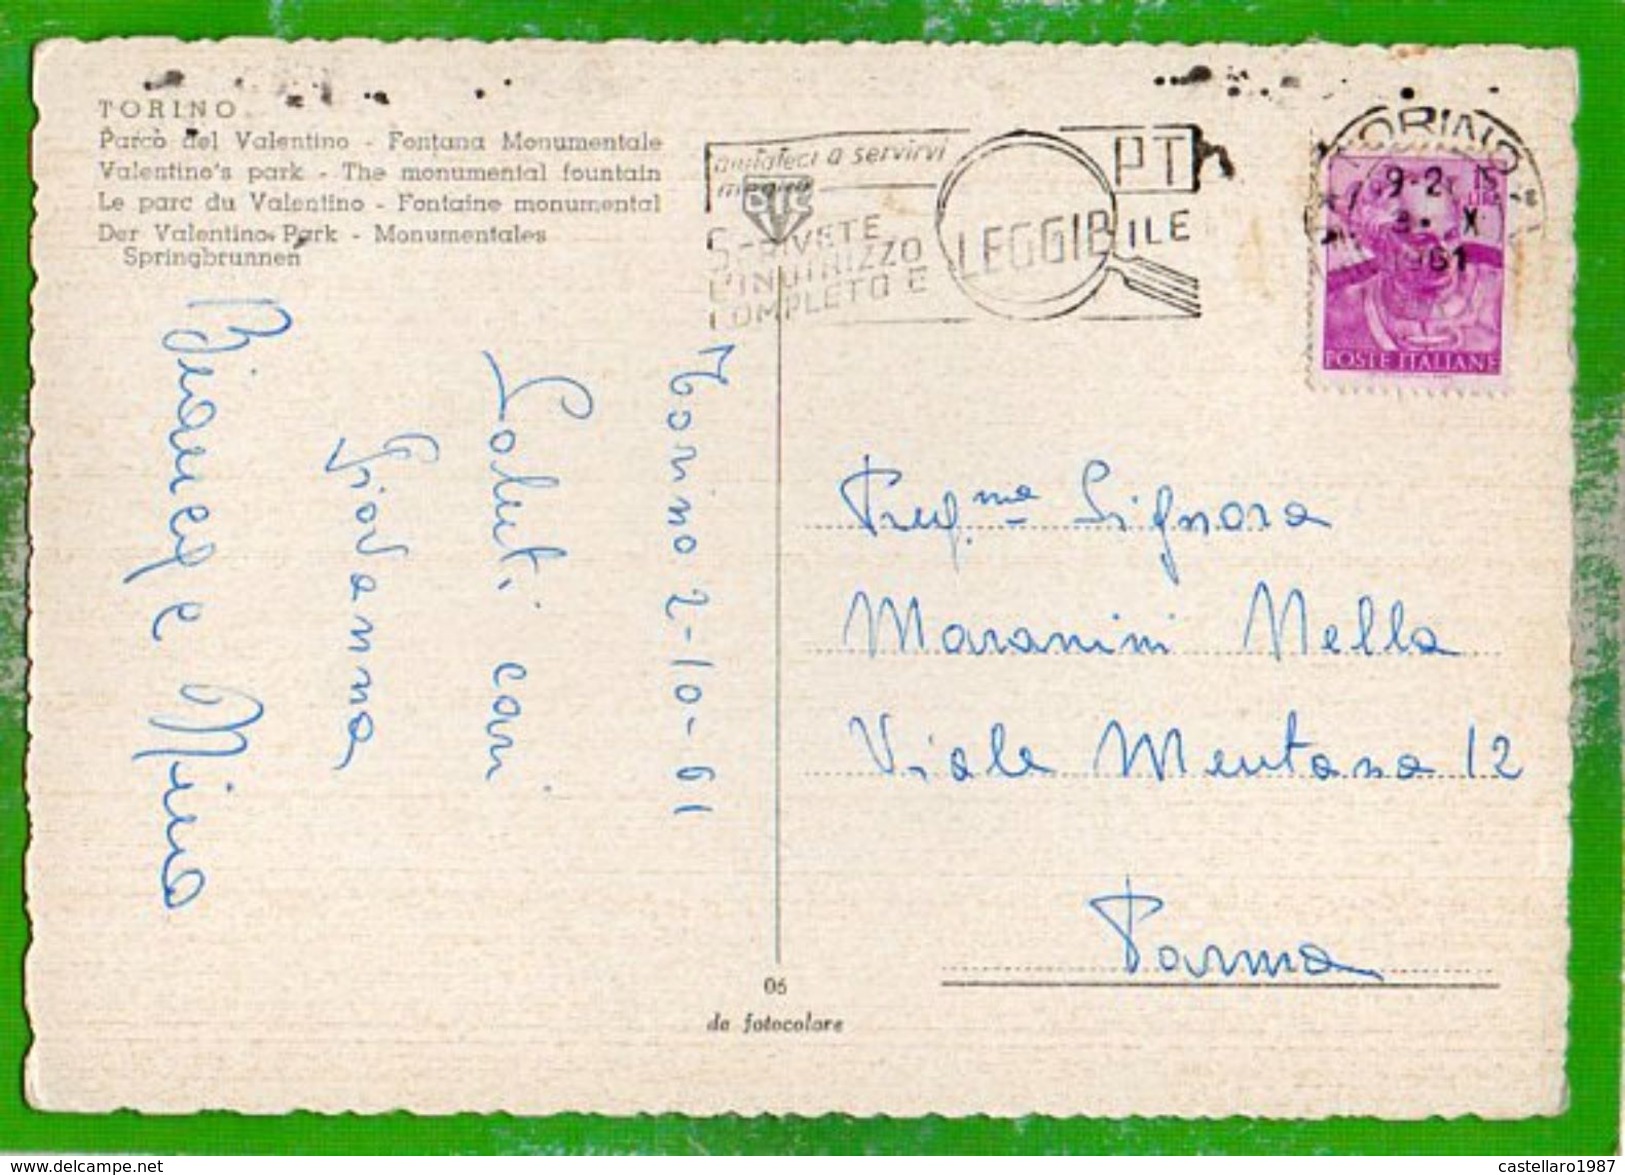 TORINO
Parco del Valentino - Fontana Monumentale
Valentine's park - The monumental fountain
Le parc du Valentino - Fontaine monumental
Der Valentino Park - Monumentales
Springbrunnen
aiutateci a servirvi
meglio
SCRIVETE
L'INDIRIZZO
COMPLETO E
LEGGIBILE
PT
TORINO
9-2
3. X
1961
15
LIRE
POSTE ITALIANE
Torino 2-10-61
Saluti cari
Giovanna
Bianca e Nino
Preg.ma Signora
Maranini Nella
Viale Mentana 12
Parma
06
da fotocolore
www.delcampe.net
castellaro1987